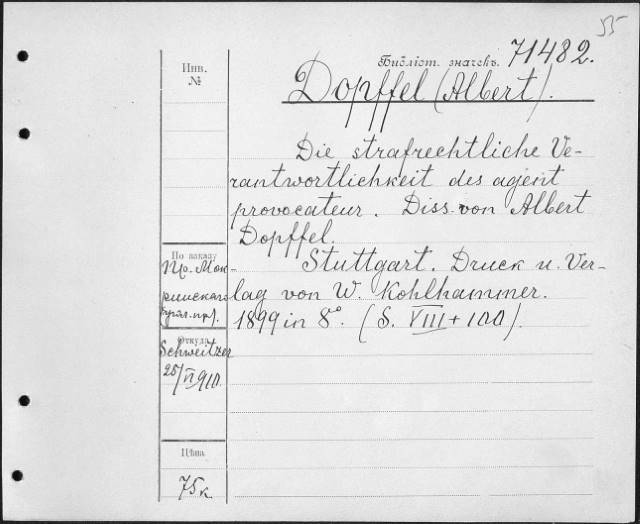 55
Библіот. значекъ. 71482.
Инв.
№
Dopffel (Albert).
Die strafrechtliche Ve-
rantwortlichkeit des agent
provocateur. Diss. von Albert
Dopffel.
Stuttgart. Druck u. Ver-
lag von W. Kohlhammer.
1899 in 8°. (S. VIII + 100).
По заказу
Пр. Мок-
ринскаго
Откуда
Schweitzer
25/VI 910.
Цѣна
75 к.